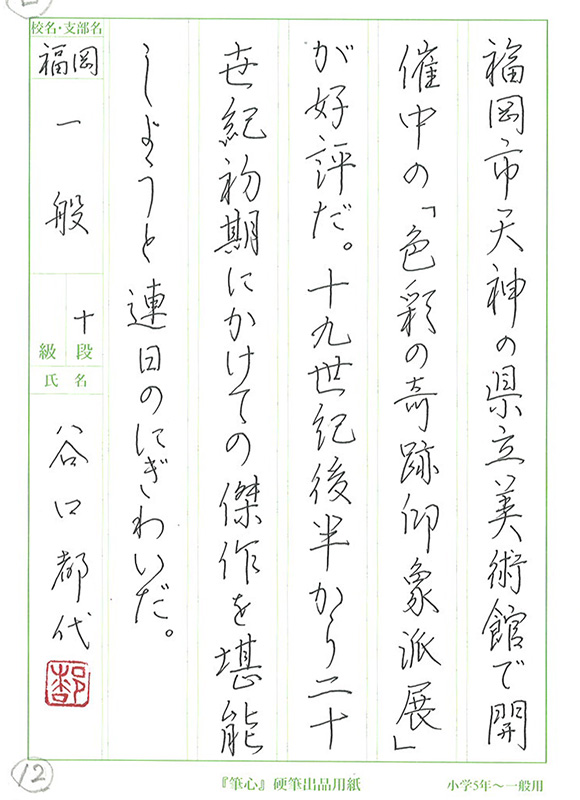 福岡市天神の県立美術館で開
催中の「色彩の奇跡印象派展」
が好評だ。十九世紀後半から二十
世紀初期にかけての傑作を堪能
しようと連日のにぎわいだ。
校名・支部名
福岡
一般
十
級 段
氏名
谷口都代
12
『筆心』硬筆出品用紙
小学5年〜一般用